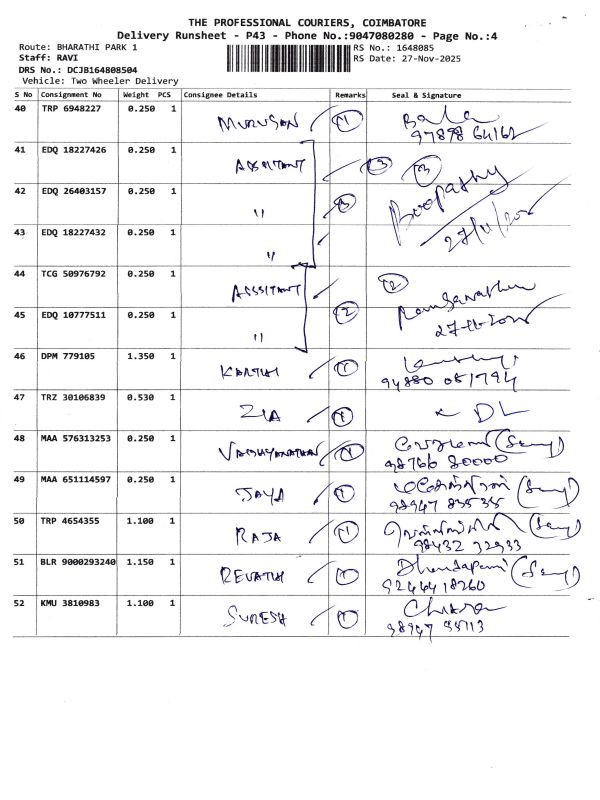 THE PROFESSIONAL COURIERS, COIMBATORE
Delivery Runsheet - P43 - Phone No.:9047080280 - Page No.:4
Route: BHARATHI PARK 1
RS No.: 1648085
Staff: RAVI
RS Date: 27-Nov-2025
DRS No.: DCJB164808504
Vehicle: Two Wheeler Delivery
S No Consignment No Weight PCS Consignee Details Remarks Seal & Signature
40 TRP 6948227 0.250 1 MURUGAN 1 Bala
97898 64162
41 EDQ 18227426 0.250 1 ASSITANT 3 3
42 EDQ 26403157 0.250 1 " 3 Boopathy
43 EDQ 18227432 0.250 1 "
44 TCG 50976792 0.250 1 ASSSITANT 2
45 EDQ 10777511 0.250 1 " 2
46 DPM 779105 1.350 1 KARTHI 1
94880 051794
47 TRZ 30106839 0.530 1 ZIA 1 DL
48 MAA 576313253 0.250 1 VAIDHYANATHAN 1
98766 80000
49 MAA 651114597 0.250 1 JAYA 1
98947 83535
50 TRP 4654355 1.100 1 RAJA 1
98432 32933
51 BLR 9000293240 1.150 1 REVATHI 1 Dhandapani
9244418260
52 KMU 3810983 1.100 1 SURESH 1
98947 55713